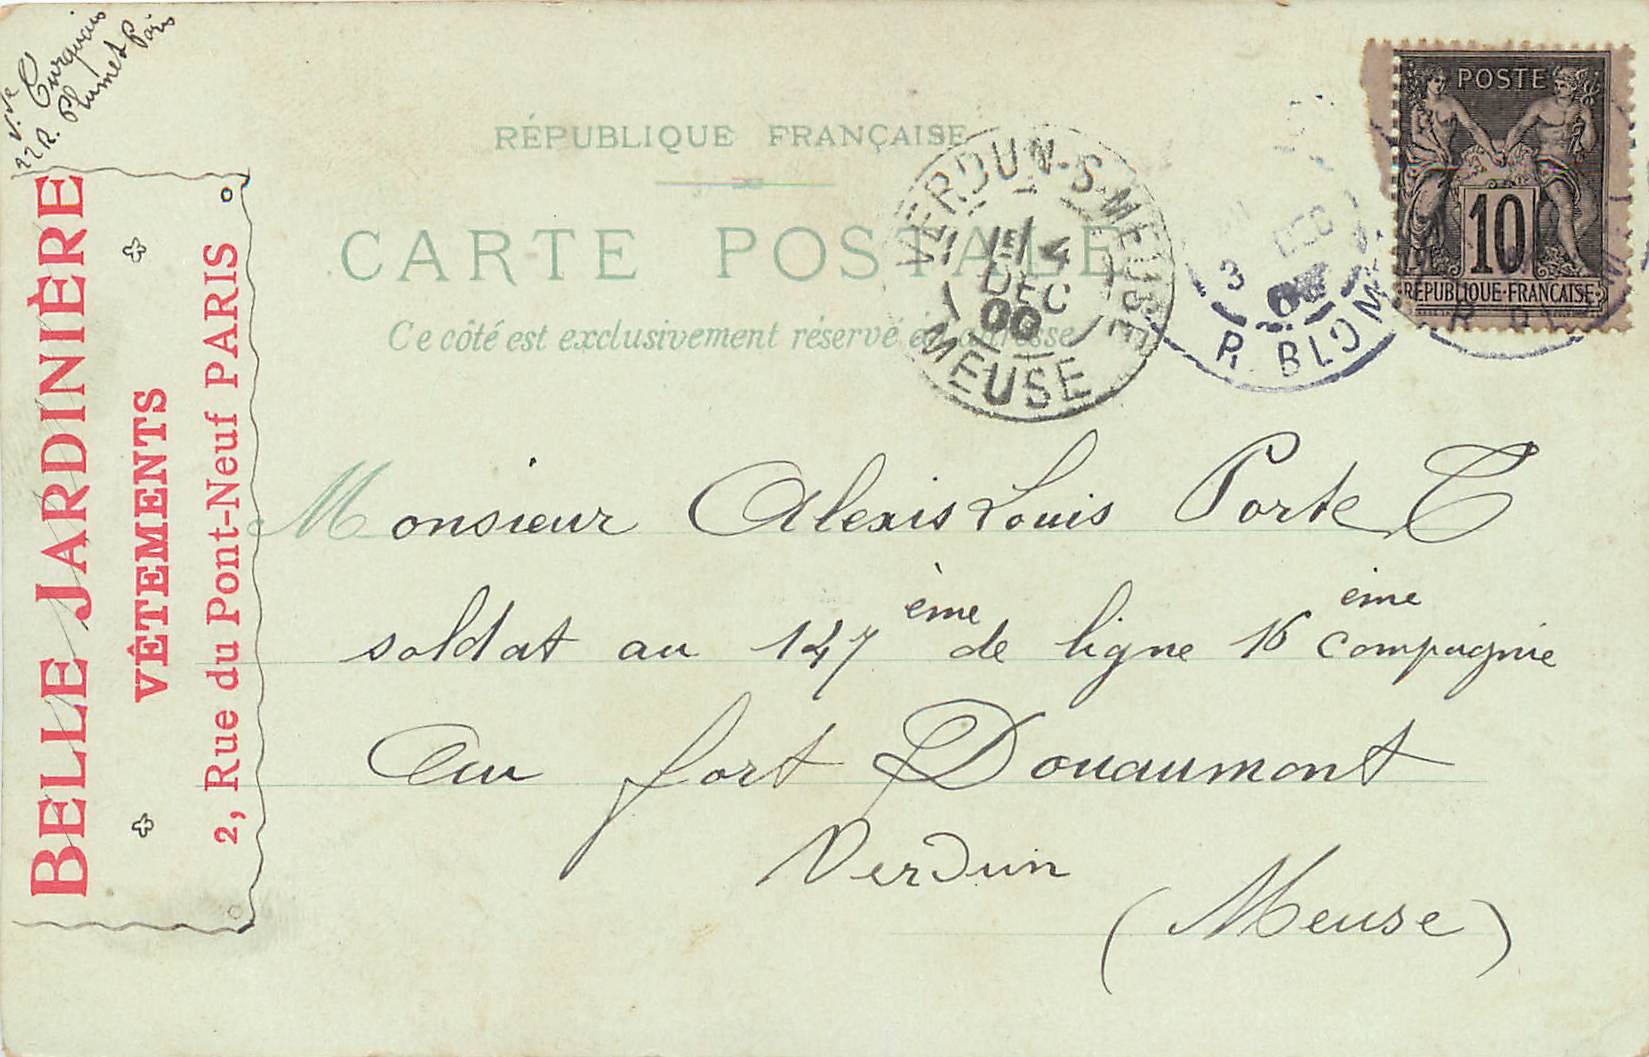 V.ve Turquais
22 R. Plumet Paris
BELLE JARDINIÈRE
VÊTEMENTS
2, Rue du Pont-Neuf PARIS
RÉPUBLIQUE FRANÇAISE
CARTE POSTALE
Ce côté est exclusivement réservé à l'adresse
VERDUN-S-MEUSE
4
DEC
00
MEUSE
3 DEC
R. BLOM
POSTE
10
REPUBLIQUE-FRANCAISE
Monsieur Alexis Louis Porte
soldat au 147ème de ligne 16ème compagnie
Au fort Douaumont
Verdun
(Meuse)